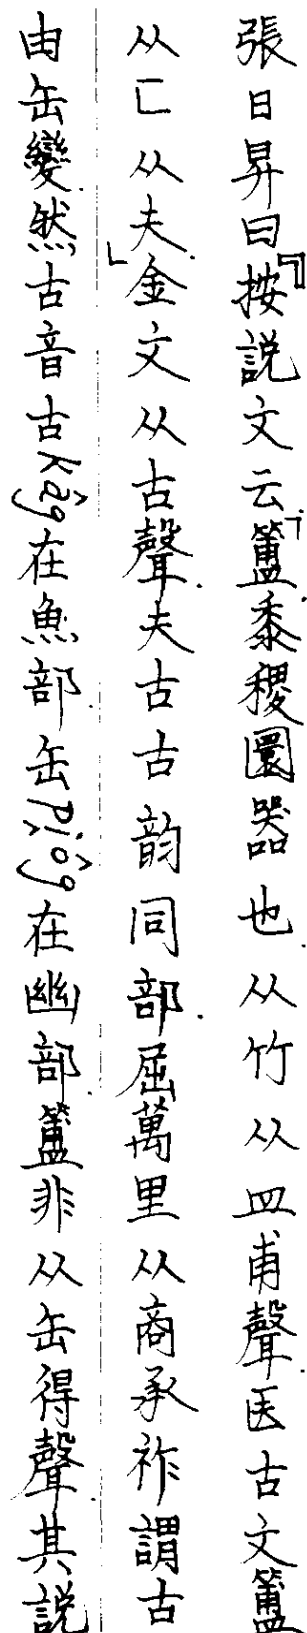 張日昇曰『按說文云「簠.黍稷圜器也.从竹从皿甫聲.医古文簠
从匚从夫.」金文从古聲.夫古古韵同部.屈萬里从商承祚謂古
由缶變.然古音古kâg在魚部.缶pi̯ôg在幽部.簠非从缶得聲.其説